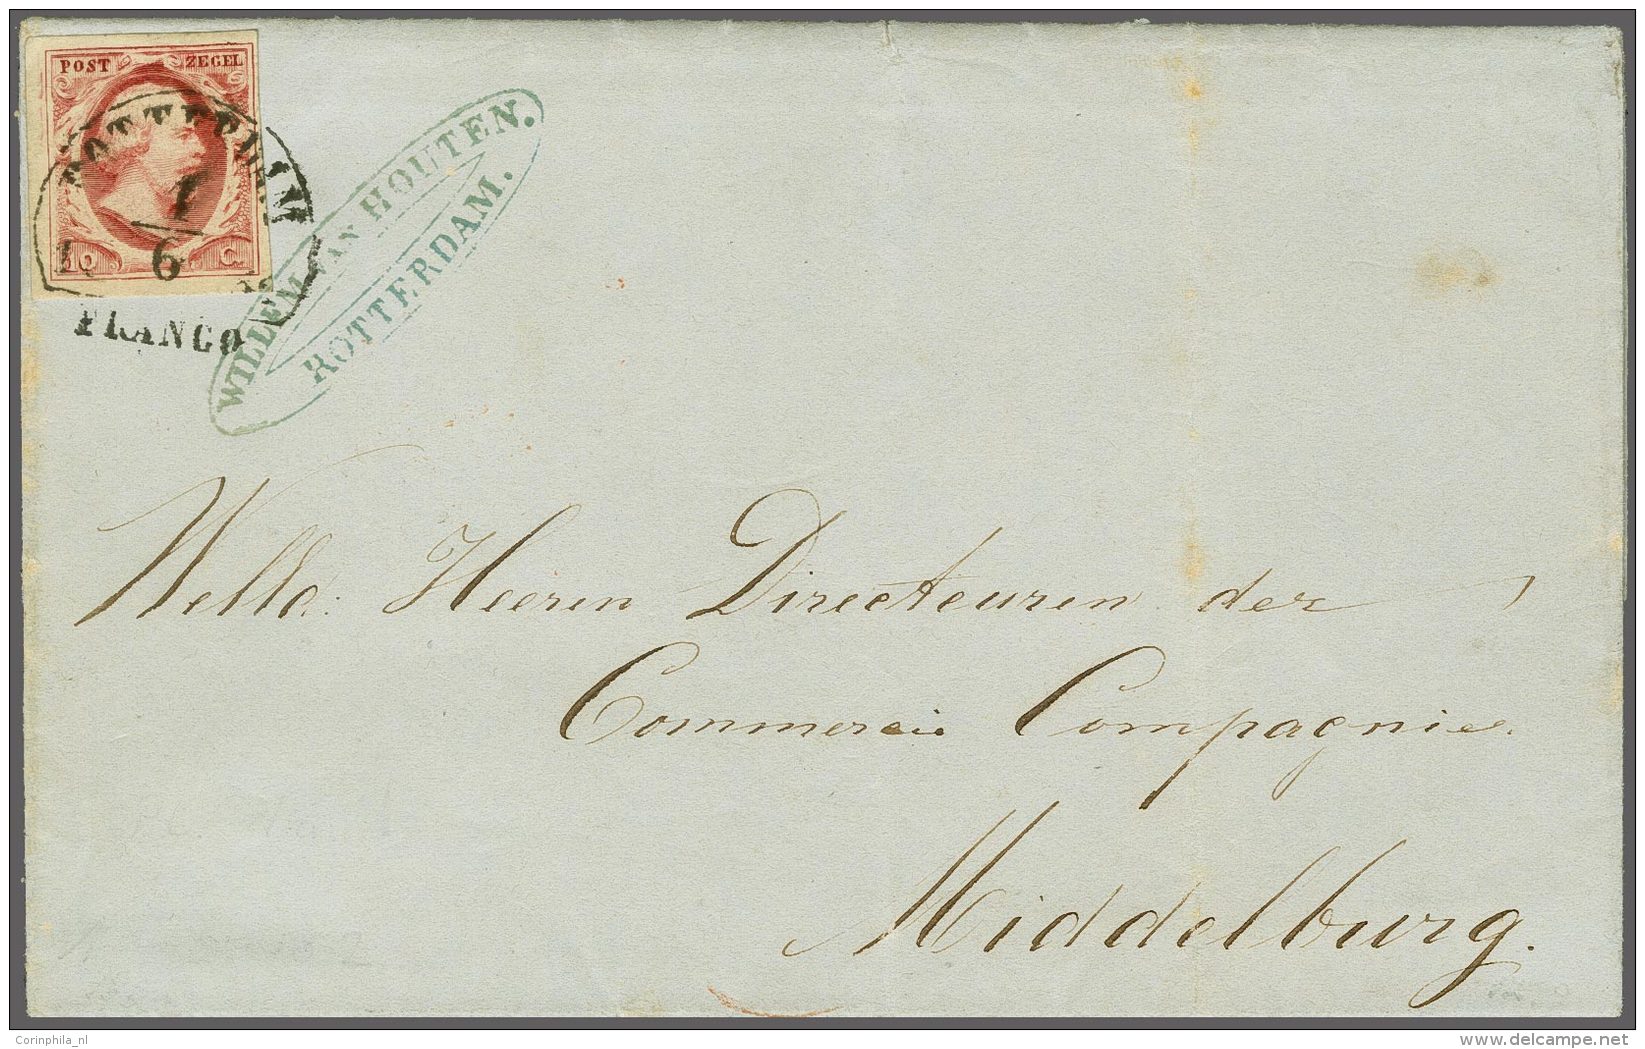 POST ZEGEL
10 C.
1
6
FRANCO
WILLEM VAN HOUTEN.
ROTTERDAM.
Heeren Directeuren der
Commercie Compagnie.
Middelburg.
Corinphila_nl
www.delcampe.net